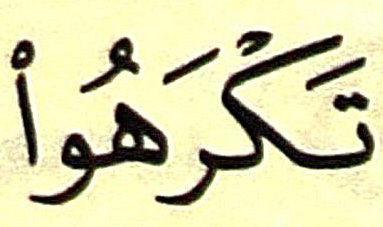 تَكْرَهُواْ